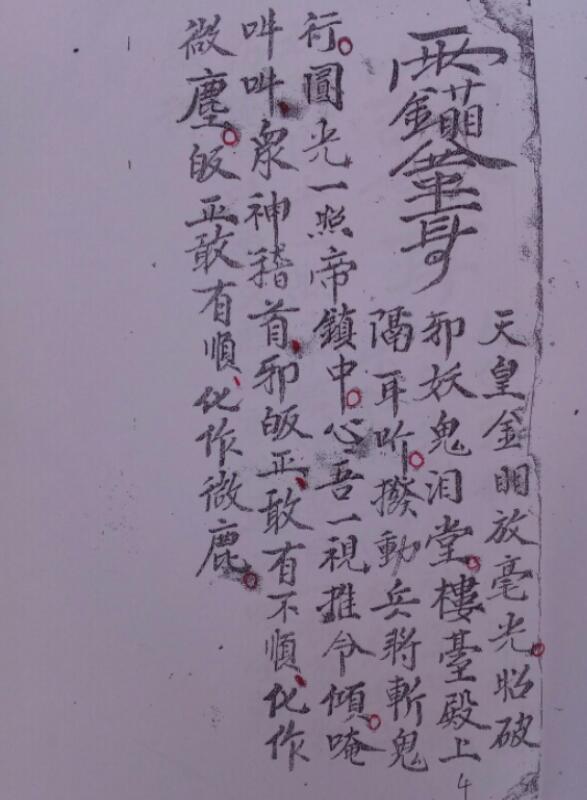 天皇金眀放毫光。昭破
邪妖鬼泪堂。樓臺殿上
隔耳听。撥動兵將斬鬼
行。圓光一照帝鎮中。心吾一視推令傾。唵
吽吽、衆神稽首、邪皈正、敢有不順、化作
微塵。皈正敢有順、化作微鹿。
4